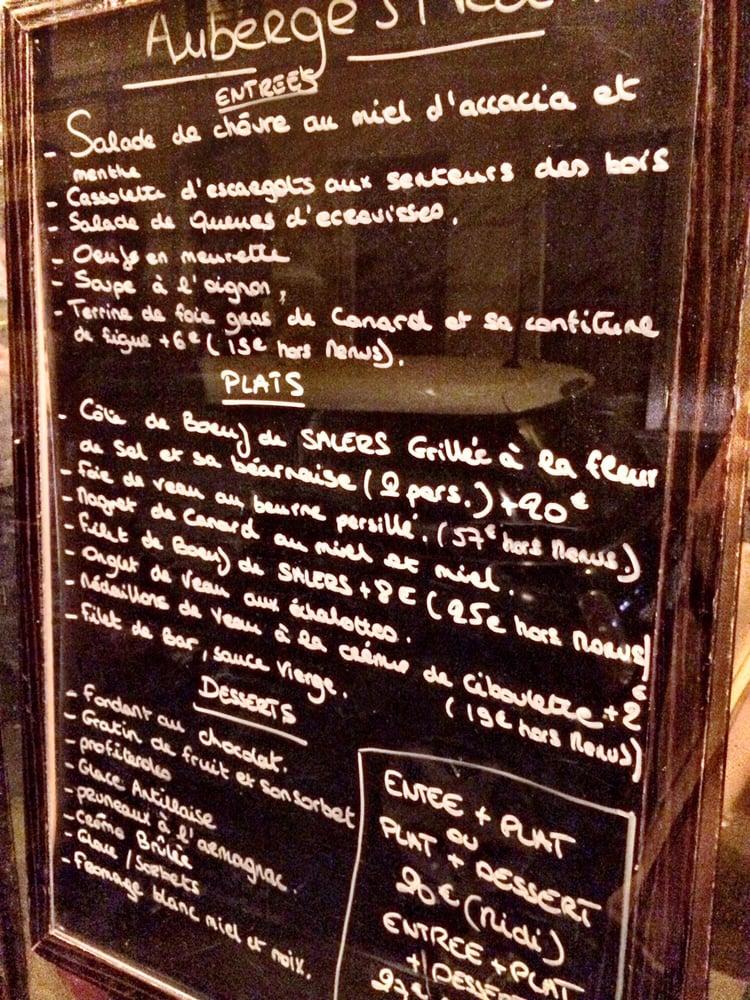 Auberge St
ENTREES
- Salade de chèvre au miel d'accacia et
menthe
- Cassolette d'escargots aux senteurs des bois
- Salade de Queues d'ecrevisses.
- Oeufs en meurette
- Soupe à l'oignon,
- Terrine de foie gras de Canard et sa confiture
de figue +6€ (15€ hors Menus).
PLATS
- Côte de Boeuf de SALERS Grillée à la fleur
de sel et sa béarnaise (2 pers.) +20€
- Foie de veau au beurre persillé. (57€ hors Menus.)
- Magret de Canard au miel et miel.
- Filet de Boeuf de SALERS +8€ (25€ hors Menus)
- Onglet de Veau aux échalottes.
- Médaillons de Veau à la crème de Ciboulette +2€
(19€ hors Menus)
- Filet de Bar, sauce Vierge.
DESSERTS
- Fondant au chocolat.
- Gratin de fruit et son sorbet
- profiteroles
- Glace Antillaise
- pruneaux à l'armagnac.
- Crème Brûlée
- Glace / Sorbets
- Fromage blanc miel et noix.
ENTEE + PLAT
OU
PLAT + DESSERT
20€ (Midi)
ENTREE + PLAT
+ DESSERT
27€